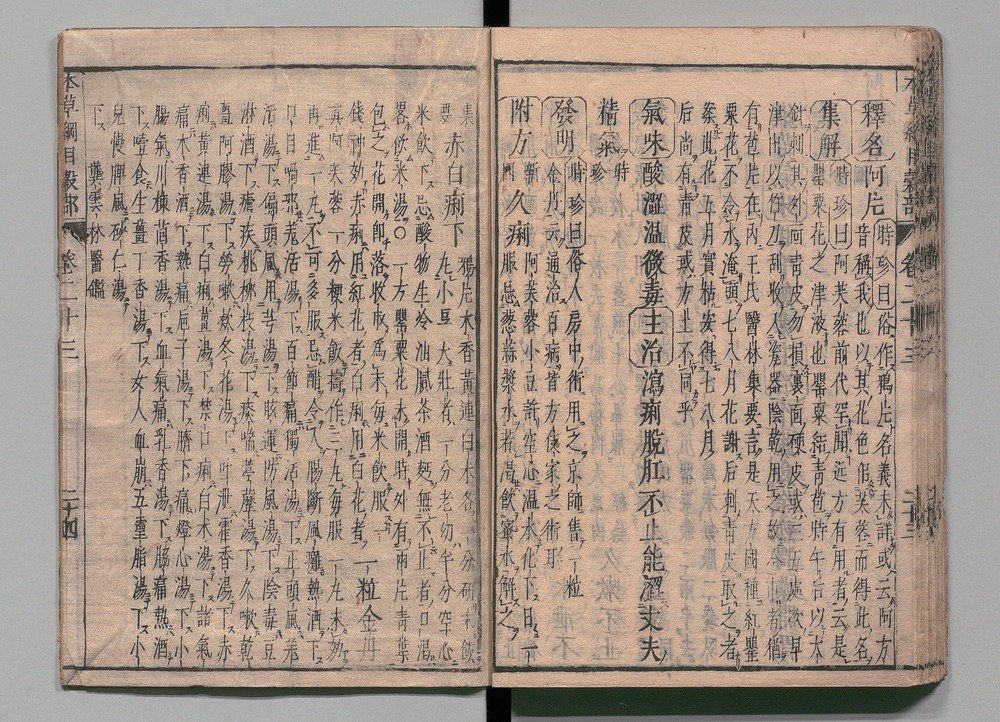 釋名阿片時珍曰俗作鴉片名義未詳或云阿方
音稱我也以其花色似芙蓉而得此名
集解時珍曰阿芙蓉前代罕聞近方有用者云是
罌粟花之津液也罌粟結青苞時午后以大
針刺其外面青皮勿損裏面硬皮或三五處次早
津出以竹刀刮收入瓷器陰乾用之故今市者猶
有苞片在內王氏醫林集要言是天方國種紅罌
粟花不令水淹頭七八月花謝后刺青皮取之者
案此花五月實枯安得七八月
后尚有青皮或方土不同乎
氣味酸澀溫微毒主治瀉痢脫肛不止能澀丈夫
精氣時珍
發明時珍曰俗人房中術用之京師售一粒
金丹云通治百病皆方伎家之術耳
附方新久痢阿芙蓉小豆許空心溫水化下日一
服忌葱蒜漿水若渴飲蜜水解之
集要赤白痢下鴉片木香黃連白朮各一分研末飯
丸小豆大壯者一分老幼半分空心
米飲下忌酸物生冷油膩茶酒麪無不止者口渴
畧飲米湯〇一方罌粟花未開時外有兩片青葉
包之花開即落收取爲末每米飲服一
錢神効赤痢用紅花者白痢用白花者一粒金丹
眞阿芙蓉一分粳米飯搗作三丸每服一丸未効
再進一丸不可多服忌醋令人腸斷風癱熱酒下
口目喎邪羌活湯下百節痛獨活湯下正頭風羌
活湯下偏頭風用芎湯下眩運防風湯下陰毒豆
淋酒下瘧疾桃柳枝湯下痰喘葶藶湯下久嗽乾
薑阿膠湯下勞嗽欵冬花湯下吐泄霍香湯下赤
痢黃連湯下白痢薑湯下禁口痢白朮湯下諸氣
痛木香酒下熱痛梔子湯下臍下痛燈心湯下小
腸氣川楝茴香湯下血氣痛乳香湯下脇痛熱酒
下噎食生薑丁香湯下女人血崩五靈脂湯下小
兒慢脾風砂仁湯
下龔雲林醫鑑
本草綱目穀部 卷二十三 二十四